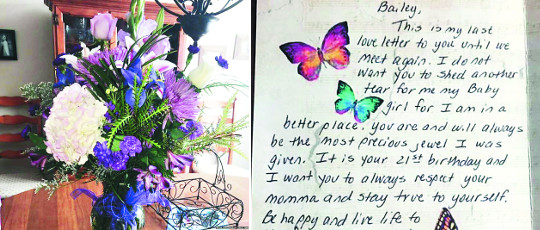 Bailey,
This is my last
love letter to you until we
meet again. I do not
want you to shed another
tear for me my Baby
girl for I am in a
better place. you are and will always
be the most precious jewel I was
given. It is your 21st birthday and
I want you to always respect your
momma and stay true to yourself.
Be happy and live life to